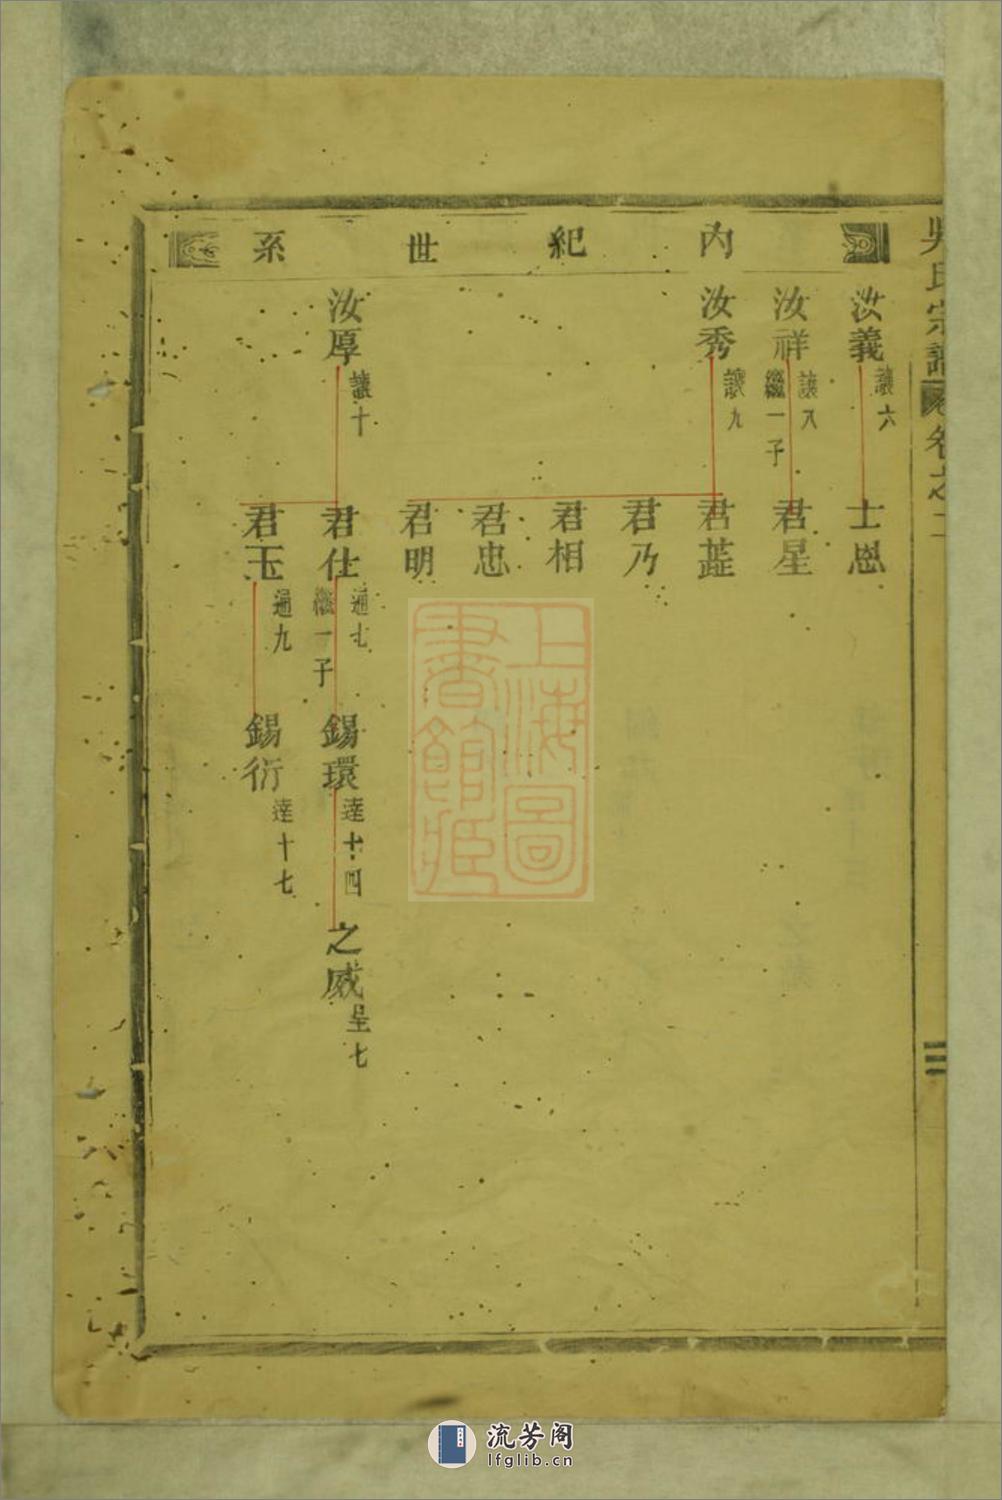 吳氏宗譜
卷之一
三
內紀世系
汝義
讓六
士恩
汝祥
讓八
繼一子
君星
汝秀
讓九
君蓝
君乃
君相
君忠
君明
汝厚
讓十
君仕
通七
繼一子
錫環
達十四
之威
呈七
君玉
通九
錫衍
達十七
上海圖
書館藏
流芳阁
lfglib.cn